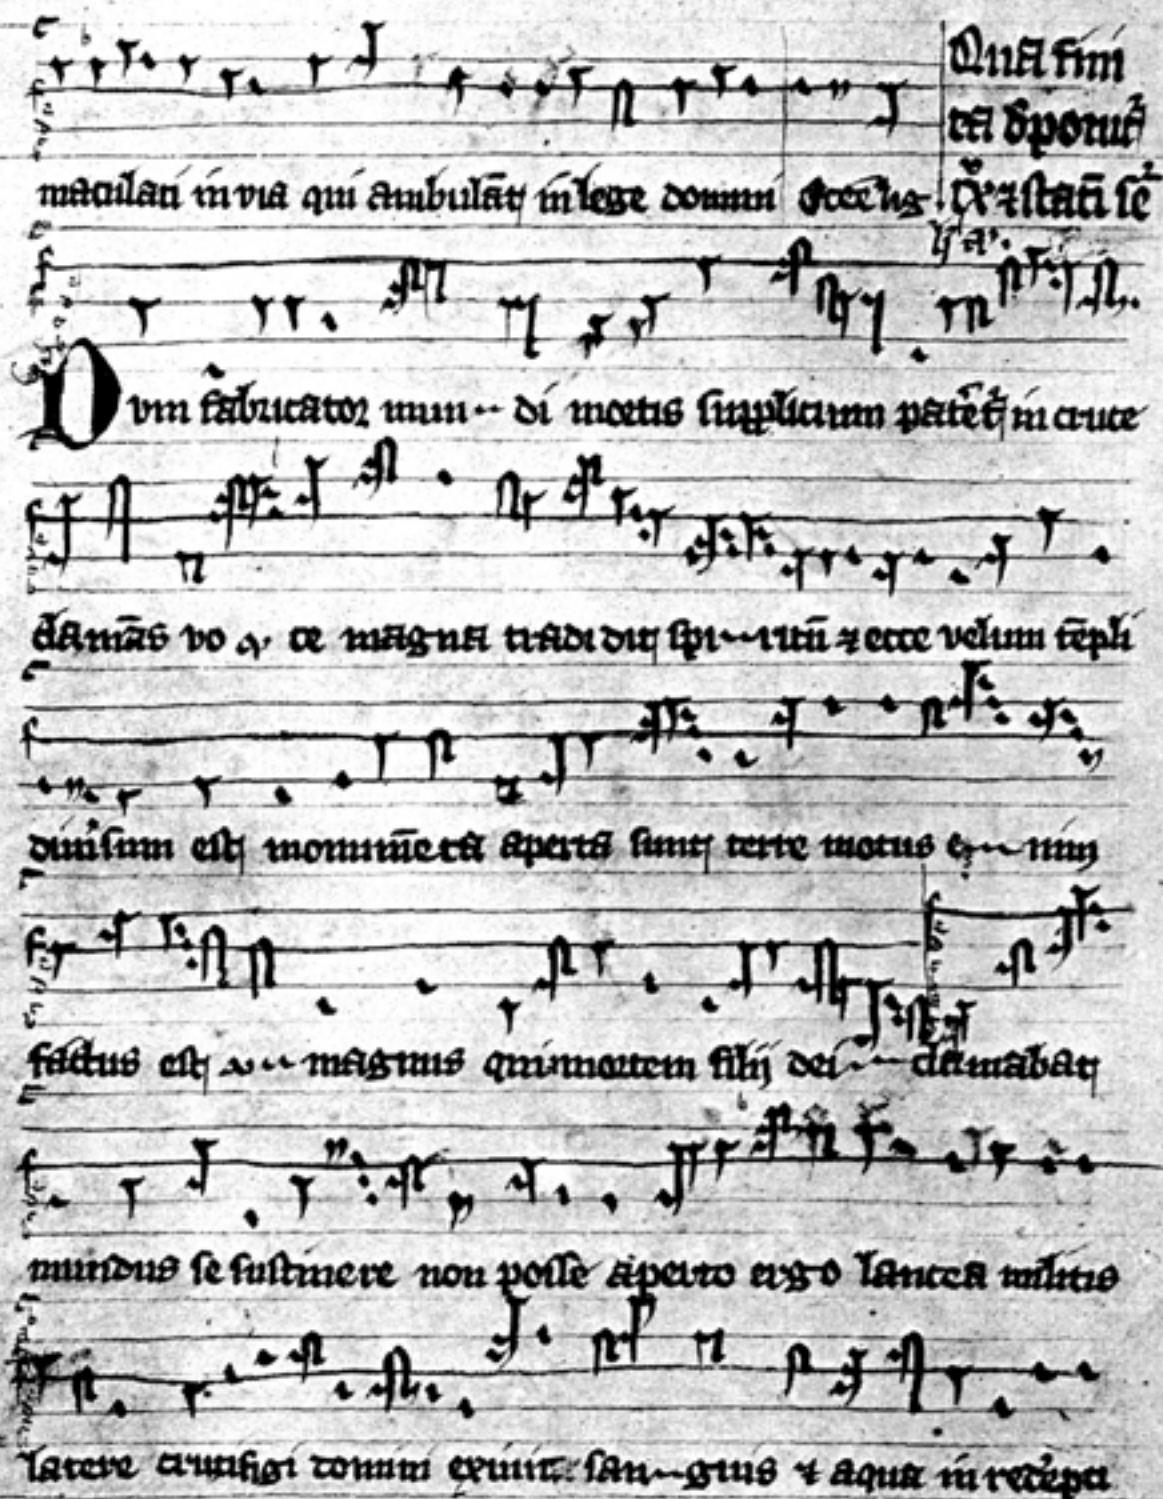 maculati in via qui ambulāt in lege domini
Qua fini
ta
Dum fabricator mun di mortis supplicium patēt in cruce
clamās vo ce magna tradidit spi ritū ⁊ ecce velum tēpli
diuisum est monumēta aperta sunt terre motus e nim
factus est magnus qui mortem filij dei clamabat
mundus se sustinere non posse aperto ergo lancea militis
latere crucifixi domini exiuit san guis ⁊ aqua in